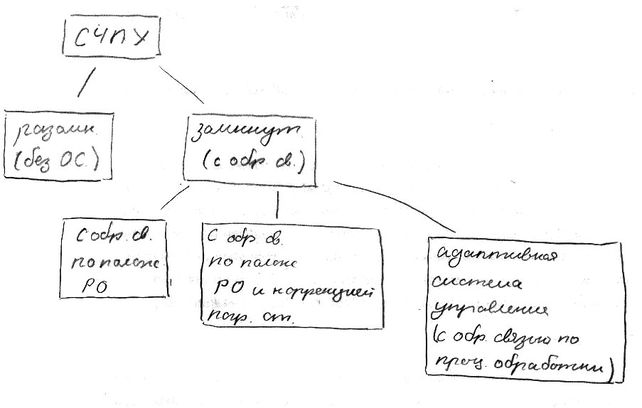 СЧПУ
разомк.
(без ОС.)
замкнут
(с обр. св.)
с обр. св.
по полож
РО
с обр св.
по полож
РО и коррекцией
погр. ст.
адаптивная
система
управления
(с обр. связью по
проц. обработки)